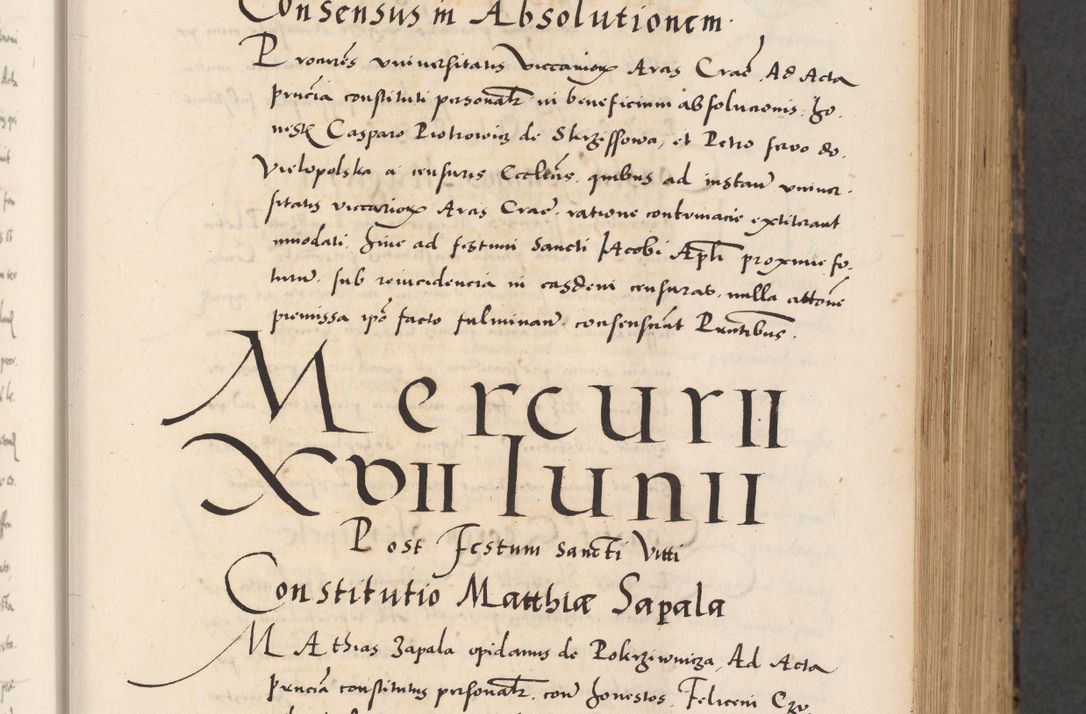 Consensus in Absolutionem.
Procures universitatis viccariorum Arcis Crae, Ad Acta
pruncia constituti personalr in beneficium absolucionis, Ho,
nestor Casparo Piotrowicz de Skrzeffowa, et Petro servo do,
Vielopolska a censuris Eccleus, quibus ad instan univer,
sitatis viccariorum Arcis Crae, ratione contumacie extiterant
innodati, hinc ad festum sancti Iacobi Apli proxime fe,
turu, sub reincidencia in easdem censuras, nulla attone
premissa ipo facto fulminan, consenserunt Pruntibus.
Mercurii
Xvii Iunii
Post Festum sancti Vitti
Constitutio Matthiæ Sapala
MAthias Zapala opidanus de Pokrziwnicza, Ad Acta
pruncia constitutus personalr, con honestos, Feliceni Czy,